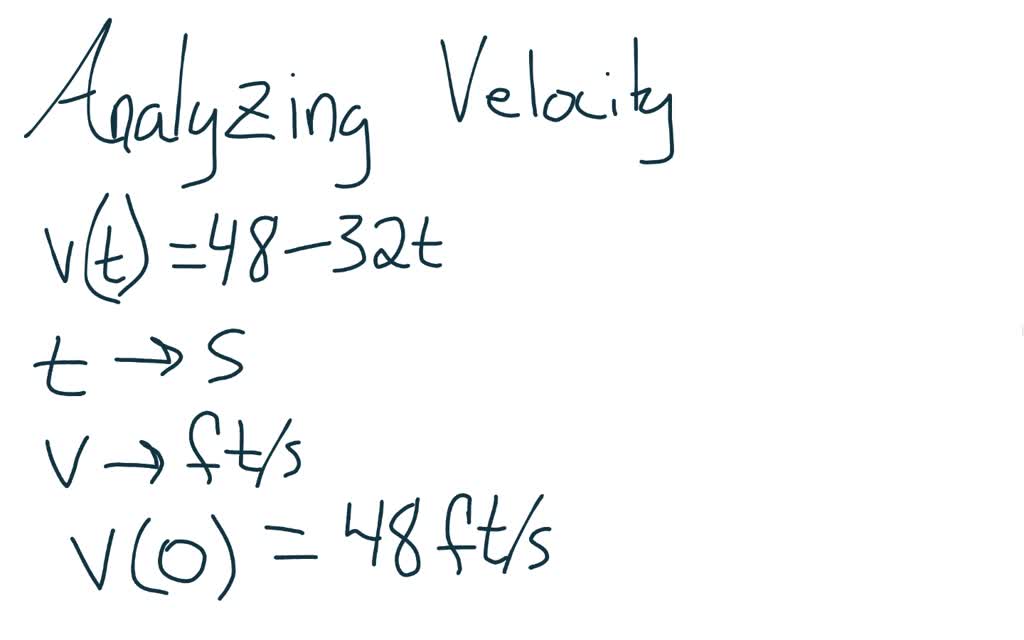 Analyzing Velocity
v(t) = 48 - 32t
t → s
v → ft/s
v(0) = 48 ft/s